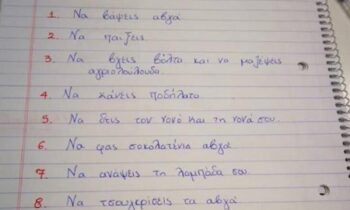 1. Να βάψεις αβγά
2. Να παίξεις.
3. Να βγεις βόλτα και να μαζέψεις
αγριολούλουδα.
4. Να κάνεις ποδήλατο
5. Να δεις τον νονό και τη νονά σου.
6. Να φας σοκολατένια αβγά
7. Να ανάψεις τη λαμπάδα σου.
8. Να τσουγκρίσεις τα αβγά.